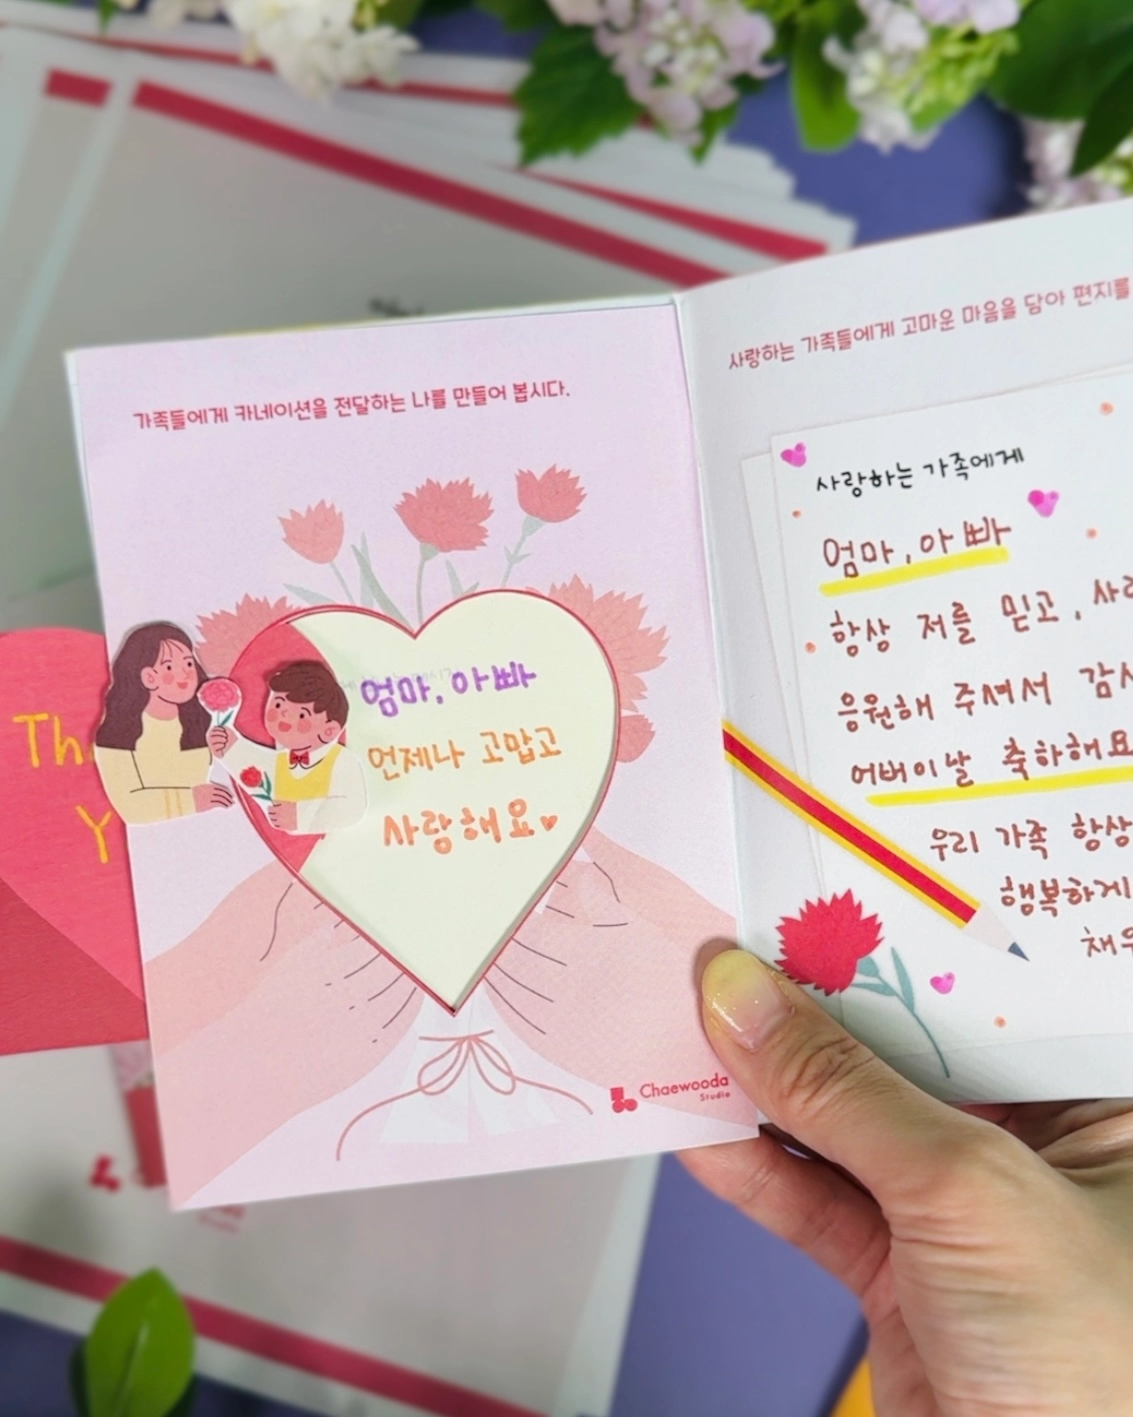 가족들에게 카네이션을 전달하는 나를 만들어 봅시다.
엄마, 아빠
언제나 고맙고
사랑해요♥
Chaewooda
Studio
사랑하는 가족들에게 고마운 마음을 담아 편지를
사랑하는 가족에게
엄마, 아빠
항상 저를 믿고,
응원해 주셔서
어버이날 축하해요
우리 가족 항상
행복하게
Th
Y